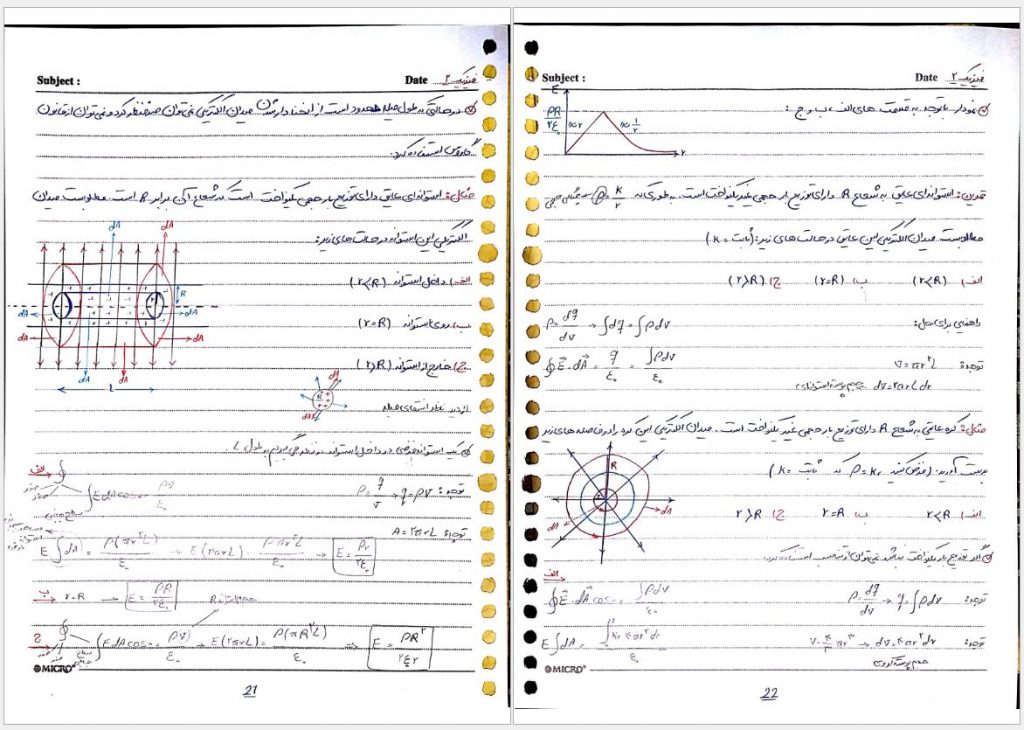 Subject :
Date فیزیک ۲
در حالتی که طول میله محدود است از انحنادار شدن میدان الکتریکی نمی‌توان صرفنظر کرد و نمی‌توان از قانون
گاوس استفاده کرد.
مثال: استوانه‌ای عایق دارای توزیع بار حجمی یکنواخت است که شعاع آن برابر R است. مطلوبست میدان
الکتریکی این استوانه در حالت‌های زیر:
الف) داخل استوانه (r<R)
ب) روی استوانه (r=R)
ج) خارج از استوانه (r>R)
dA
dA
R
dA
dA
dA
dA
dA
dA
L
R
dA
از دید نقطه انتهای میله
یک استوانه فرضی در داخل استوانه در نظر می‌گیریم به طول L
الف
∮ E dA cos = ρv/ε.
توجه: ρ = q/v → q = ρv
توجه: A = ۲πrL
E∫dA = ρ(πr²L)/ε. → E(۲πrL) = ρπr²L/ε. → E = ρr/۲ε.
ب r=R → E = ρR/۲ε.
ج ∮ E dA cos = ρv/ε. → E(۲πrL) = ρ(πR²L)/ε. → E = ρR²/۲ε.r
MICRO
21
Subject :
Date فیزیک ۲
نمودار با توجه به قسمت های الف، ب و ج:
E
ρR/۲ε.
∝r
∝ 1/r
r
تمرین: استوانه‌ای عایق به شعاع R دارای توزیع بار حجمی غیر یکنواخت است. به طوری که ρ = K/r چگالی حجمی
مطلوبست میدان الکتریکی این عایق در حالت های زیر: (ثابت = K)
الف) (r<R) ب) (r=R) ج) (r>R)
راهنمایی برای حل:
ρ = dq/dv → ∫dq = ∫ρdv
∮E.dA = q/ε. = ∫ρdv/ε.
توجه: v = πr²L
dv = ۲πrLdr حجم پوسته استوانه‌ای
مثال: کره عایقی به شعاع R دارای توزیع بار حجمی غیر یکنواخت است. میدان الکتریکی این کره را در فاصله های زیر
بدست آورید. (فرض کنید ρ = Kr که ثابت = K)
الف) r<R ب) r=R ج) r>R
R
dA
dA
اگر توزیع بار یکنواخت نباشد نمی‌توان از تناسب استفاده کرد.
الف
∮E.dA cos = ∫ρdv/ε.
توجه: ρ = dq/dv → q = ∫ρdv
E∫dA = ∫Kr ۴πr²dr/ε.
توجه: v = ۴/۳ πr³ → dv = ۴πr²dr
حجم پوسته کروی
MICRO
22